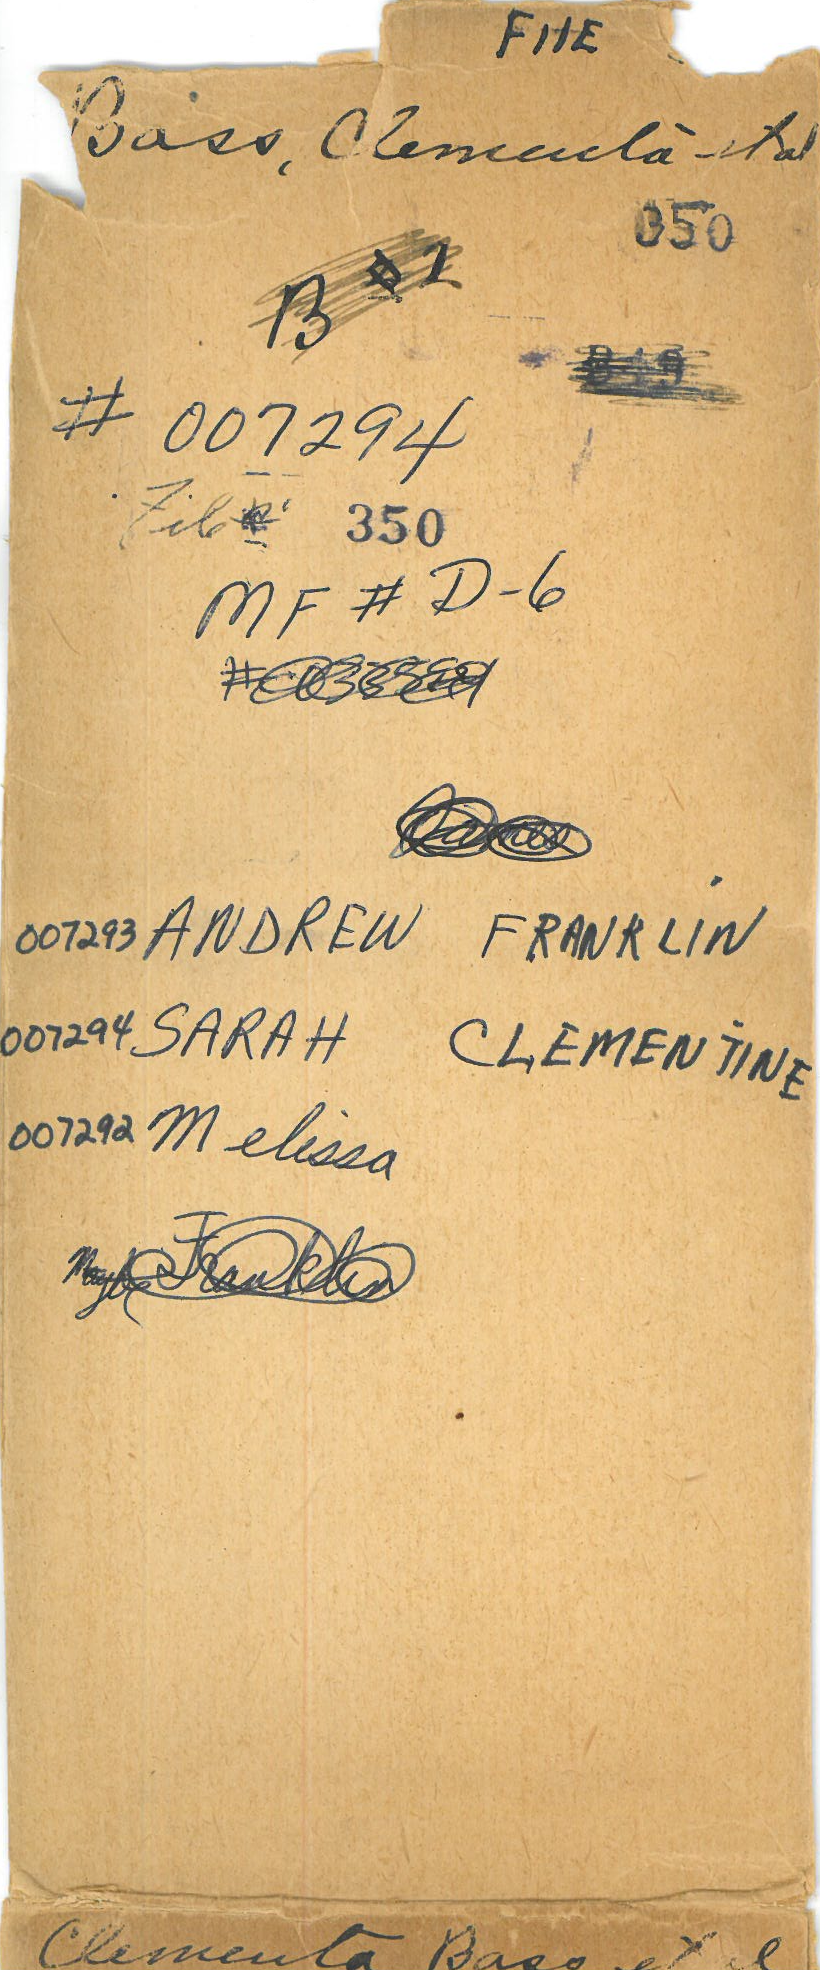 FIIE
Bass, Clementa - et al
350
B #1
849
# 007294
File # 350
MF # D-6
007293 ANDREW FRANKLIN
007294 SARAH CLEMENTINE
007292 Melissa
Franklin
Clementa Bass, et al